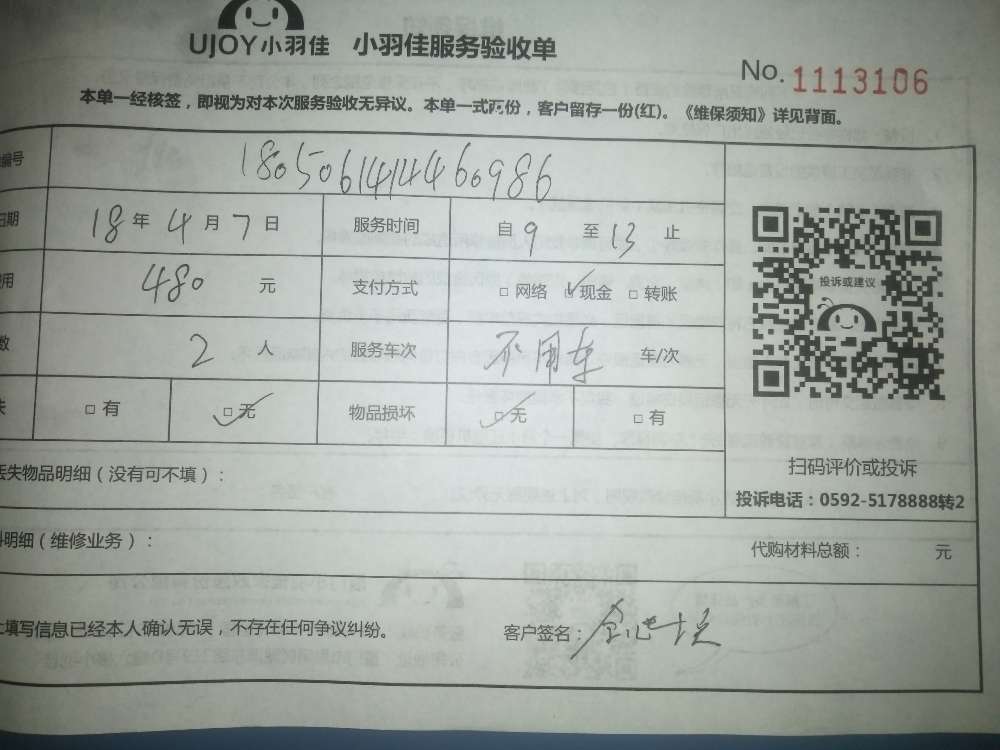 UJOY小羽佳 小羽佳服务验收单
No. 1113106
本单一经核签，即视为对本次服务验收无异议。本单一式两份，客户留存一份(红)。《维保须知》详见背面。
编号 1805061414460986
日期 18 年 4 月 7 日 服务时间 自 9 至 13 止
费用 480 元 支付方式 □ 网络 □ 现金 □ 转账
数 2 人 服务车次 不用车 车/次
失 □ 有 □ 无 物品损坏 □ 无 □ 有
投诉或建议
扫码评价或投诉
投诉电话：0592-5178888转2
丢失物品明细（没有可不填）：
料明细（维修业务）： 代购材料总额： 元
上填写信息已经本人确认无误，不存在任何争议纠纷。 客户签名：